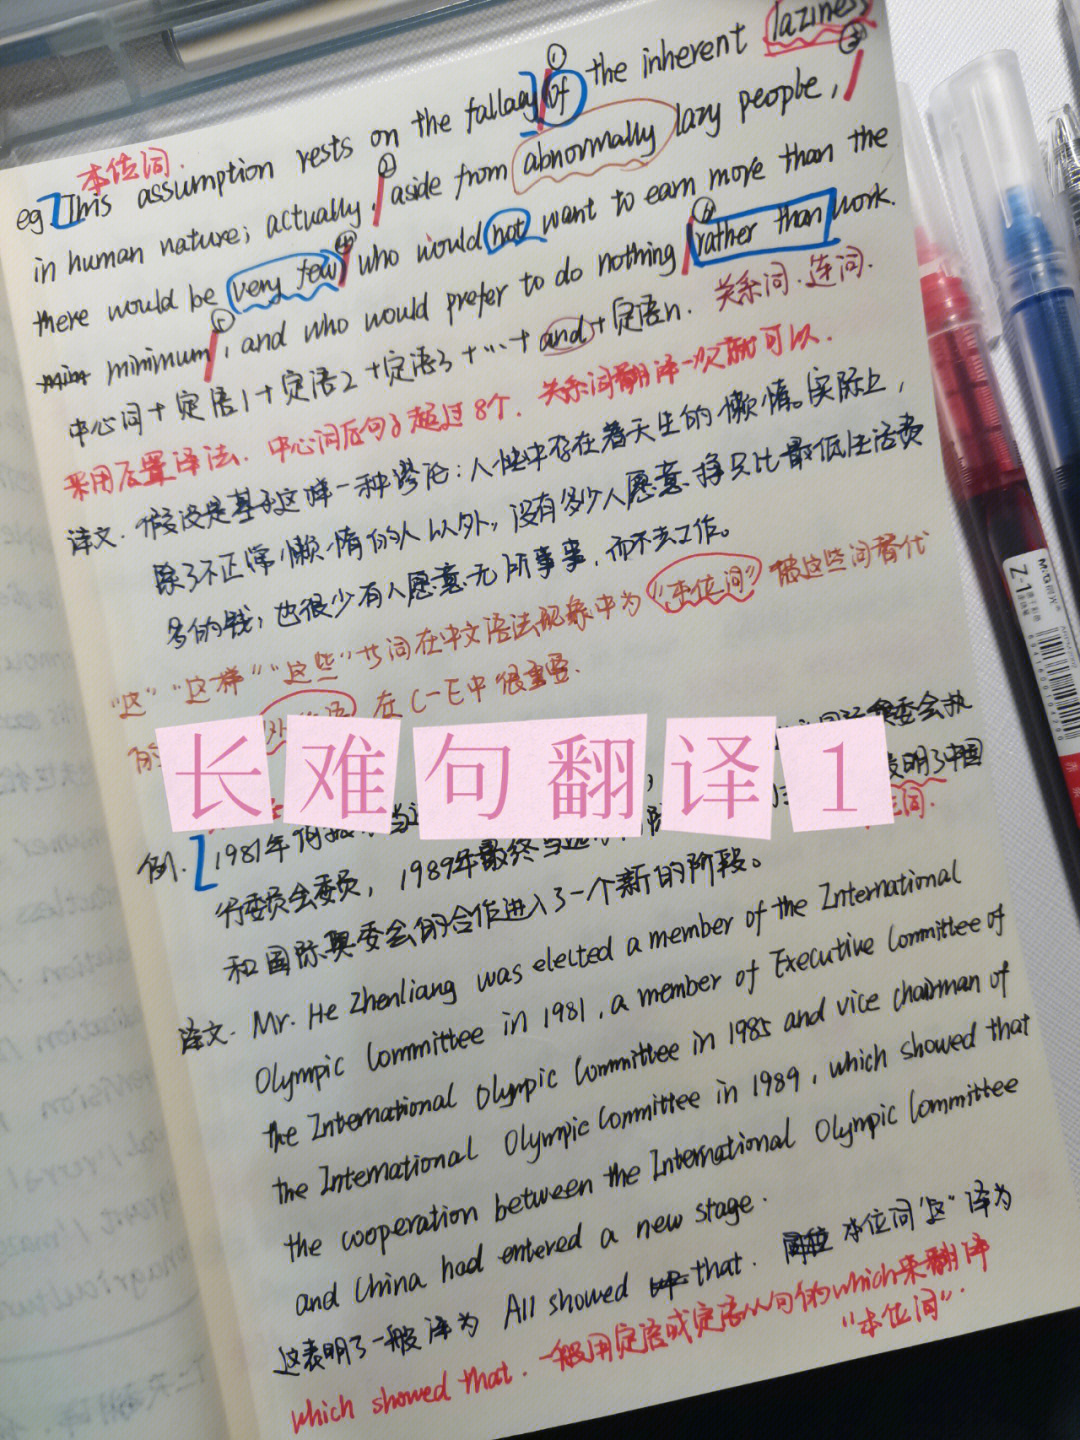 本位词.
eg This assumption rests on the fallacy ① of the inherent laziness
in human nature; actually, ② aside from abnormally lazy people, ③
there would be very few ④ who would not want to earn more than the
minimum ⑤, and who would prefer to do nothing ⑥ rather than work.
中心词+定语1+定语2+定语3+…+and+定语n. 关系词.连词.
采用后置译法. 中心词后句子超过8个. 关系词翻译一次就可以.
译文. 假设是基于这样一种谬论:人性中存在着天生的懒惰。实际上,
除了不正常懒惰的人以外,没有多少人愿意挣只比最低生活费
多的钱,也很少有人愿意无所事事,而不去工作。
"这" "这样" "这些" 等词在中文语法现象中为 "本位词" 被这些词替代
在C-E中很重要.
长难句翻译1
例. 1981年
委会执
行委员会委员, 1989年最终当选
表明了中国
和国际奥委会的合作进入了一个新的阶段。
译文. Mr. He Zhenliang was elected a member of the International
Olympic Committee in 1981, a member of Executive Committee of
the International Olympic Committee in 1985 and vice chairman of
the International Olympic Committee in 1989, which showed that
the cooperation between the International Olympic Committee
and China had entered a new stage.
这表明了一般译为 All showed that. 本位词"这"译为
which showed that. 一般用定语或定语从句的which来翻译
"本位词".
M&G
Z-1